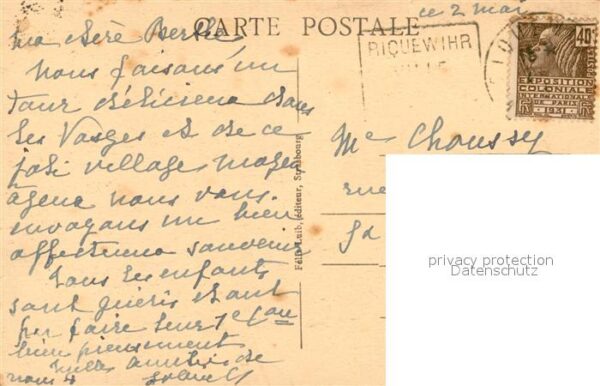 CARTE POSTALE
ce 2 mai
RIQUEWIHR
VILLE
40c
POSTES
EXPOSITION
COLONIALE
INTERNATIONALE
DE PARIS
1931
RF
ma chère Berthe
Nous faisons un
tour délicieux dans
les Vosges et de ce
joli village moyen
âgeux nous vous
envoyons un bien
affectueux souvenir
Tous les enfants
sont guéris et ont
pu faire leur 1e Con
bien pieusement
Milles amitiés de
nous 4
Félix Luib, éditeur, Strasbourg
Me Choussy
rue
privacy protection
Datenschutz